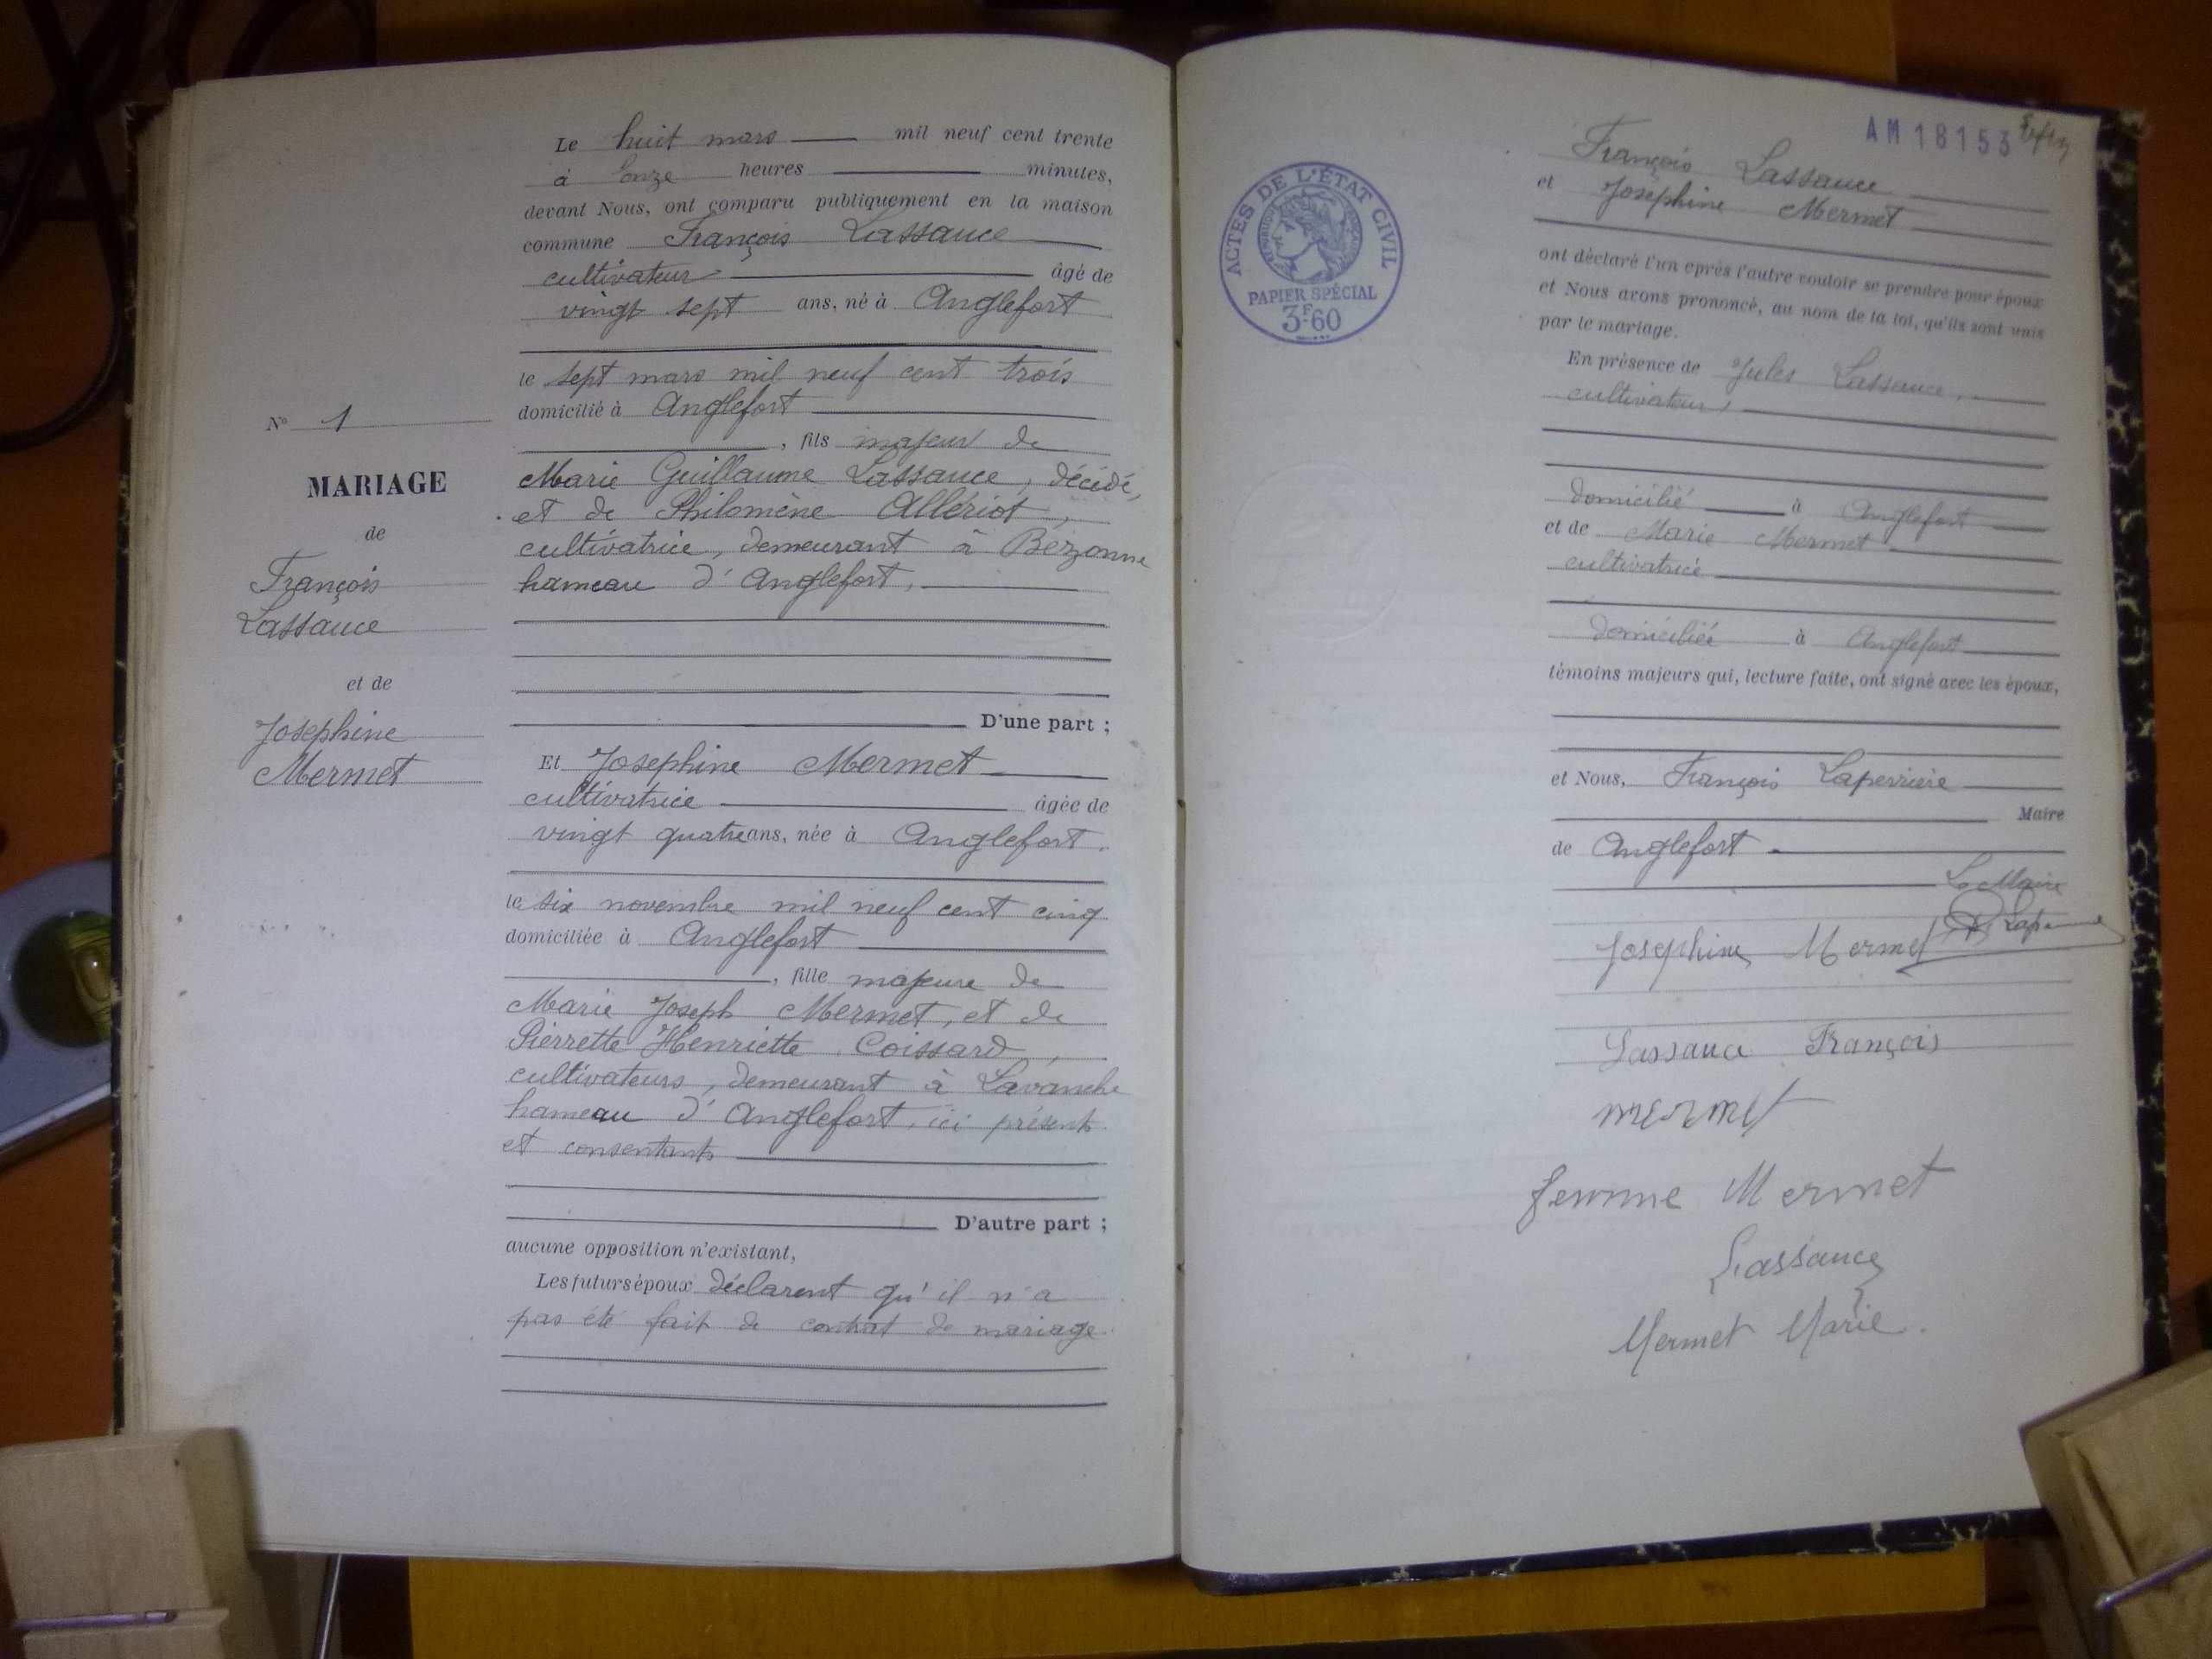 Le huit mars mil neuf cent trente
à onze heures minutes,
devant Nous, ont comparu publiquement en la maison
commune François Lassauce
cultivateur âgé de
vingt sept ans, né à Anglefort
le sept mars mil neuf cent trois
domicilié à Anglefort
, fils majeur de
Marie Guillaume Lassauce, décédé,
et de Philomène Allériot,
cultivatrice, demeurant à Bezonne
hameau d'Anglefort.
D'une part ;
Et Josephine Mermet
cultivatrice âgée de
vingt quatre ans, née à Anglefort.
le six novembre mil neuf cent cinq
domiciliée à Anglefort
, fille majeure de
Marie Joseph Mermet, et de
Pierrette Henriette Coissard,
cultivateurs, demeurant à Lavanche
hameau d'Anglefort, ici présents
et consentants
D'autre part ;
aucune opposition n'existant,
Les futurs époux déclarent qu'il n'a
pas été fait de contrat de mariage.
N° 1
MARIAGE
de
François
Lassauce
et de
Josephine
Mermet
AM18153
ACTES DE L'ÉTAT CIVIL
PAPIER SPÉCIAL
3F.60
François Lassauce
et Josephine Mermet
ont déclaré l'un après l'autre vouloir se prendre pour époux
et Nous avons prononcé, au nom de la loi, qu'ils sont unis
par le mariage.
En présence de Jules Lassauce,
cultivateur,
domicilié à Anglefort
et de Marie Mermet
cultivatrice
domiciliée à Anglefort
témoins majeurs qui, lecture faite, ont signé avec les époux,
et Nous, François Laperrière
Maire
de Anglefort.
Le Maire
Josephine Mermet
Lassauce François
mermet
femme Mermet
Lassauce
Mermet Marie.